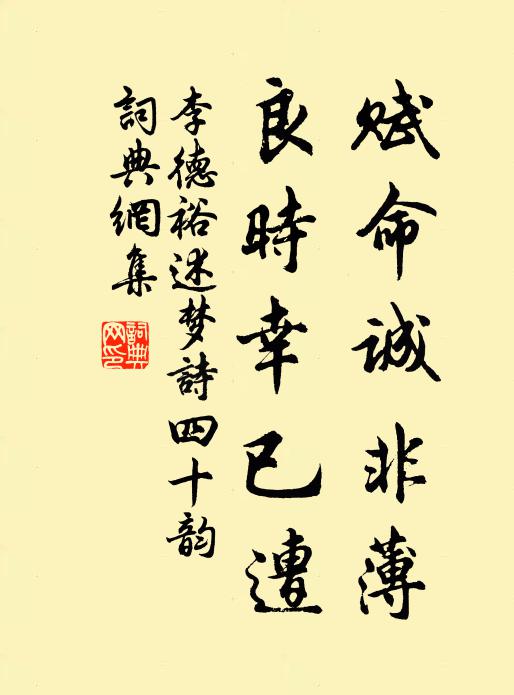 赋命诚非薄
良時幸已遭
李德裕述梦詩四十韵
詞典網集
詞典
网印